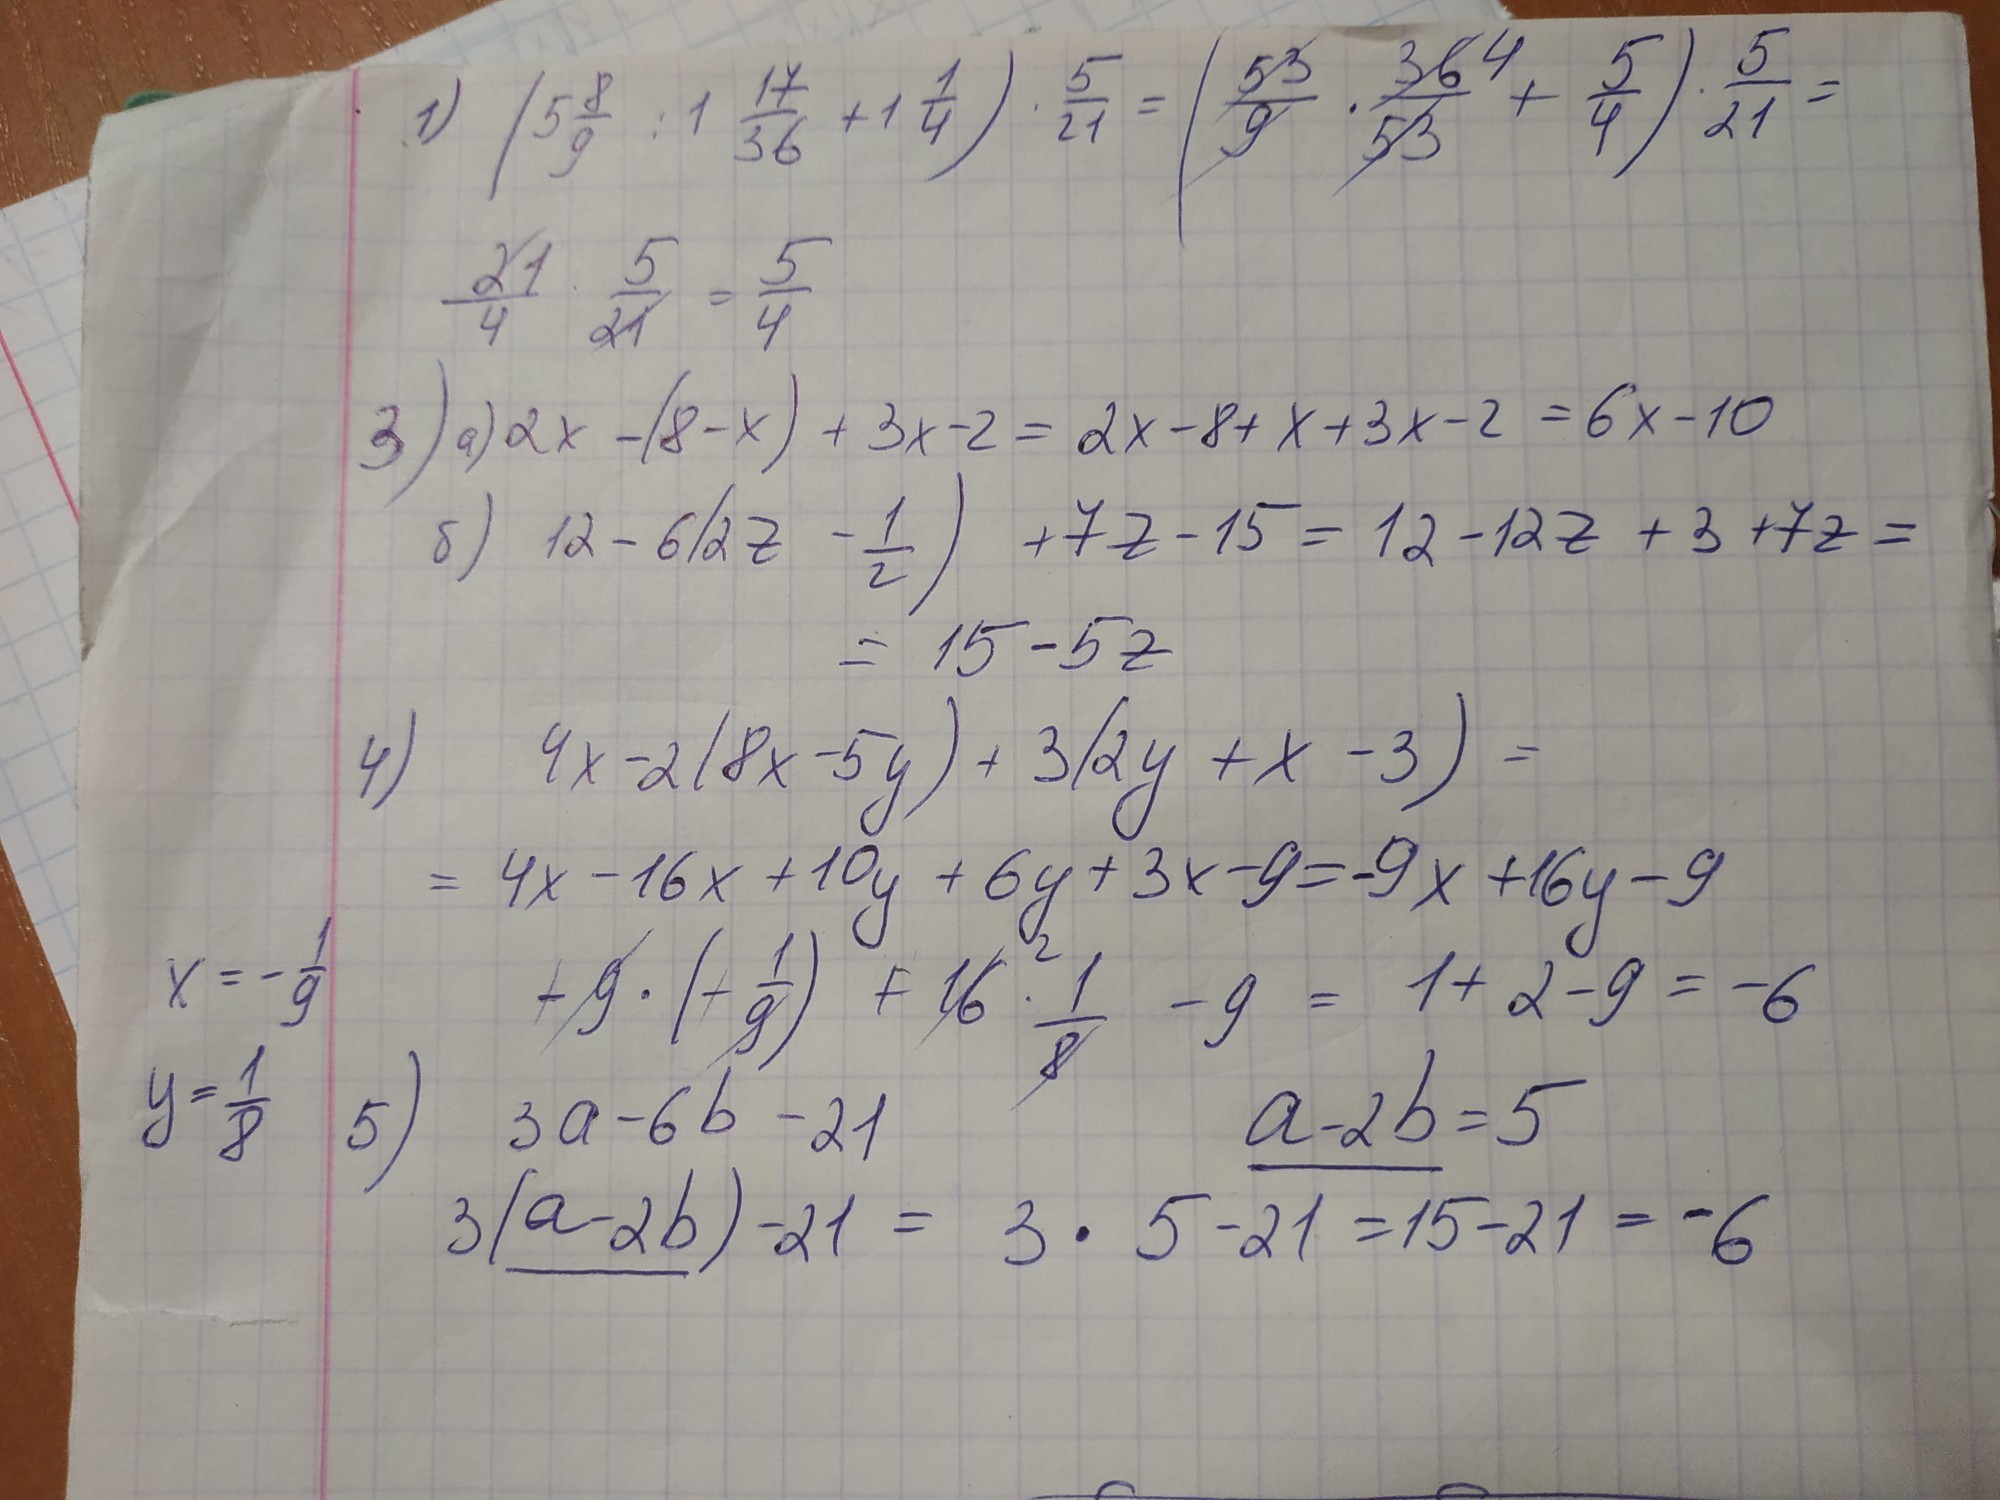 1) (5 8/9 : 1 17/36 + 1 1/4) · 5/21 = (53/9 · 36 4/53 + 5/4) · 5/21 =
21/4 · 5/21 = 5/4
3) а) 2x - (8 - x) + 3x - 2 = 2x - 8 + x + 3x - 2 = 6x - 10
б) 12 - 6(2z - 1/2) + 7z - 15 = 12 - 12z + 3 + 7z =
= 15 - 5z
4) 4x - 2(8x - 5y) + 3(2y + x - 3) =
= 4x - 16x + 10y + 6y + 3x - 9 = -9x + 16y - 9
x = - 1/9 + 9 · (+ 1/9) + 16 2 · 1/8 - 9 = 1 + 2 - 9 = -6
y = 1/8
5) 3a - 6b - 21 a - 2b = 5
3(a - 2b) - 21 = 3 · 5 - 21 = 15 - 21 = -6